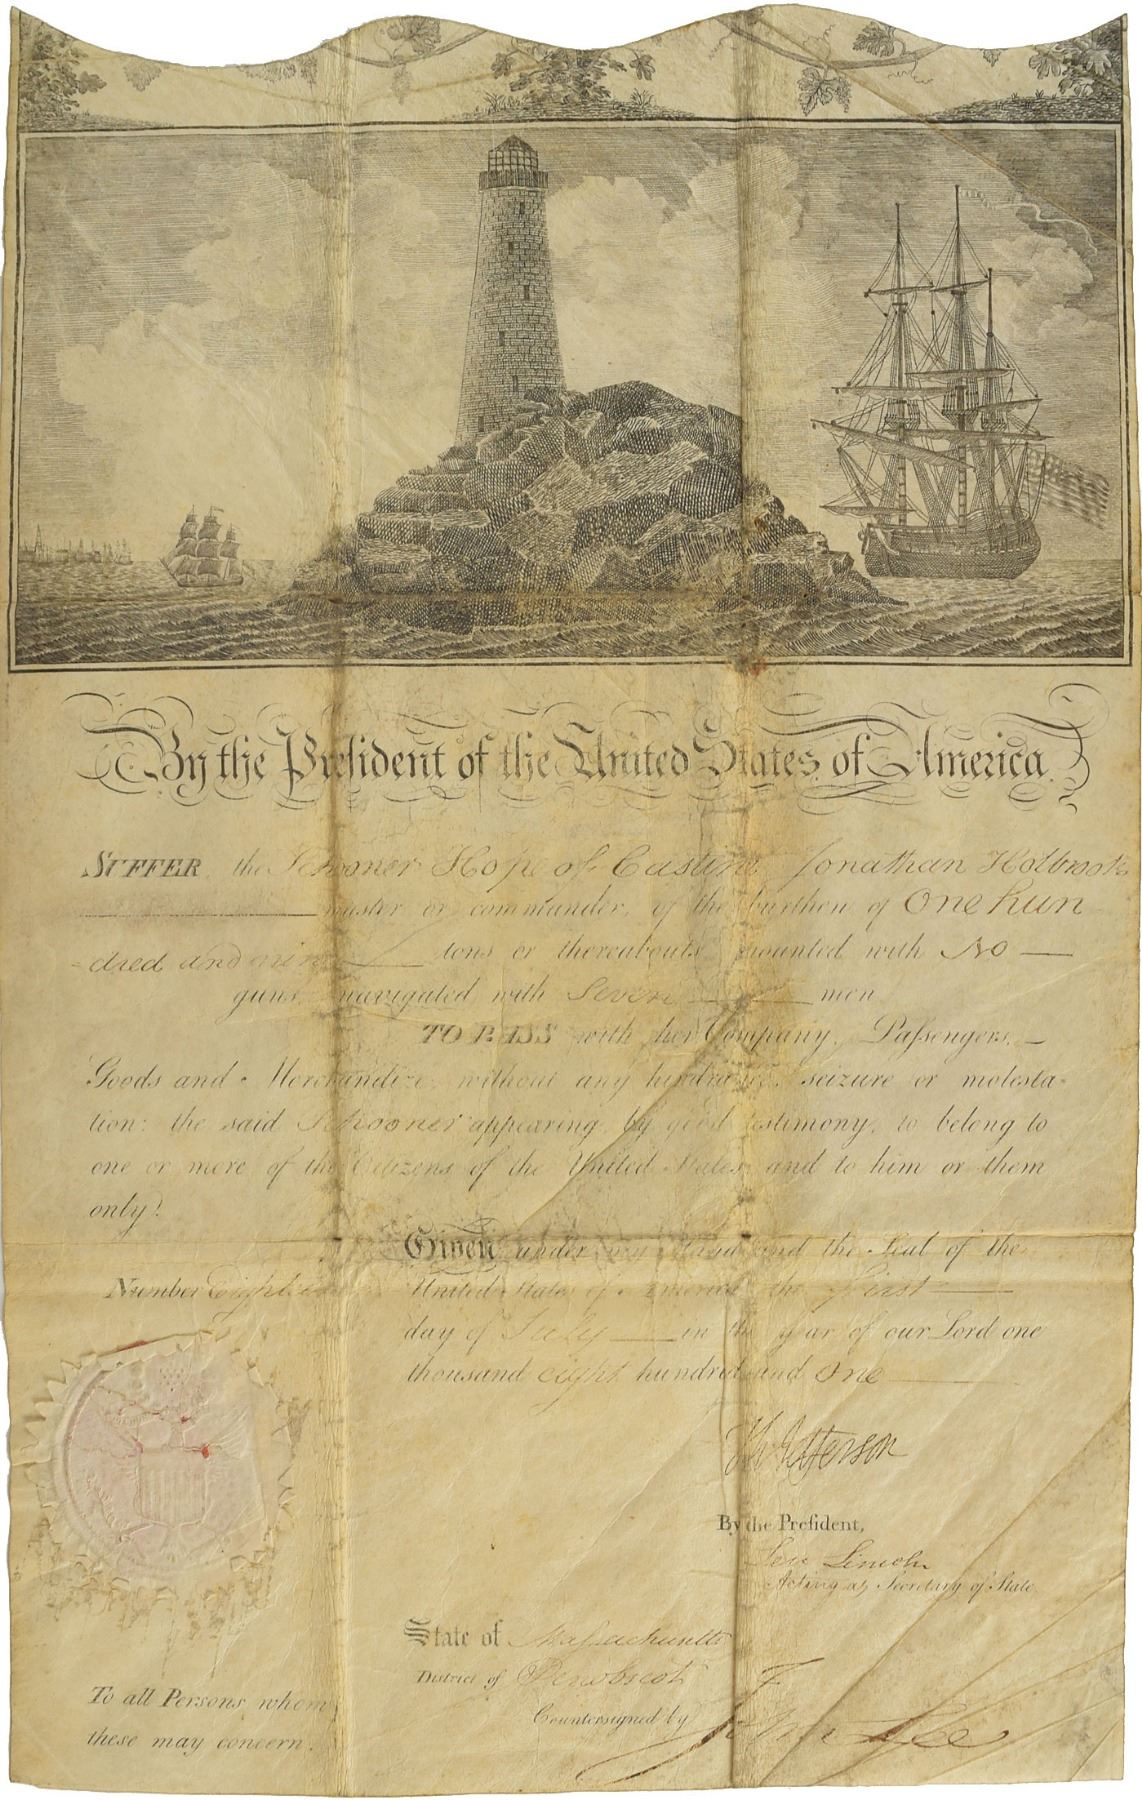 By the President of the United States of America
SUFFER the Schooner Hope of Castine Jonathan Holbrook
master or commander, of the burthen of One hun
dred and nine tons or thereabouts mounted with No
guns navigated with Seven men
TO PASS with her Company, Paſsengers,
Goods and Merchandize without any hindrance, seizure or molesta-
tion: the said Schooner appearing by good testimony, to belong to
one or more of the Citizens of the United States and to him or them
only.
Given under my Hand and the Seal of the
Number
United States of America the first
day of July in the year of our Lord one
thousand eight hundred and one
Th Jefferson
By the Preſident,
Levi Lincoln
Acting as Secretary of State
State of Maſsachusetts
District of Penobscot
To all Persons whom
Countersigned by John Lee
these may concern.